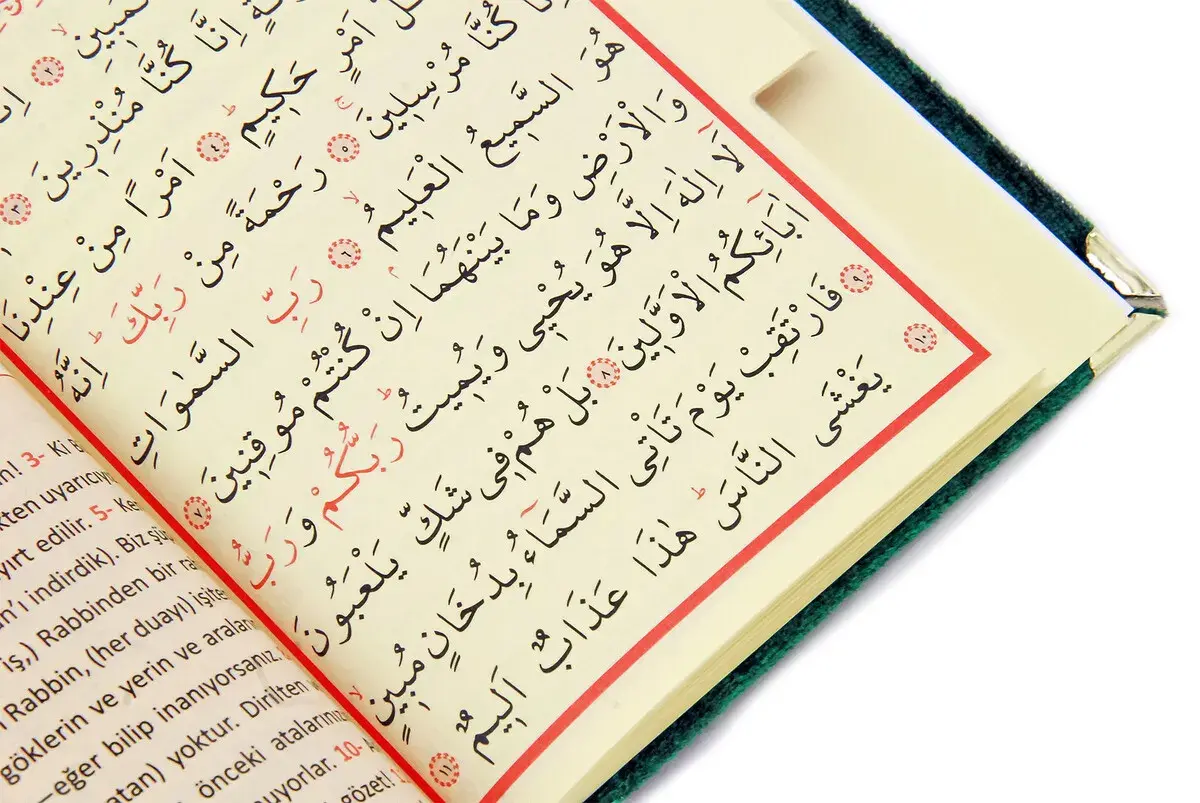 ٢
اِنَّا كُنَّا مُنْذِرِينَ ٣
اَمْرٍ حَكِيمٍ ٤ اَمْرًا مِنْ عِنْدِنَا
اِنَّا كُنَّا مُرْسِلِينَ ٥ رَحْمَةً مِنْ رَبِّكَ اِنَّهُ
هُوَ السَّمِيعُ الْعَلِيمُ ٦ رَبِّ السَّمٰوَاتِ
وَالْاَرْضِ وَمَا بَيْنَهُمَا اِنْ كُنْتُمْ مُوقِنِينَ ٧
لَٓا اِلٰهَ اِلَّا هُوَ يُحْيِى وَيُمِيتُ رَبُّكُمْ وَرَبُّ
اٰبَٓائِكُمُ الْاَوَّلِينَ ٨ بَلْ هُمْ فِى شَكٍّ يَلْعَبُونَ
٩ فَارْتَقِبْ يَوْمَ تَأْتِى السَّمَٓاءُ بِدُخَانٍ مُبِينٍ
١٠ يَغْشَى النَّاسَ هٰذَا عَذَابٌ اَلِيمٌ ١١
3- Ki
uyarıcıy
yırt edilir. 5-
n'ı indirdik). Biz
iş,) Rabbinden bir
Rabbin, (her duayı) işite
göklerin ve yerin ve araların
—eğer bilip inanıyorsanız.
atan) yoktur. Dirilten
önceki atalarınız
10-
gözet!